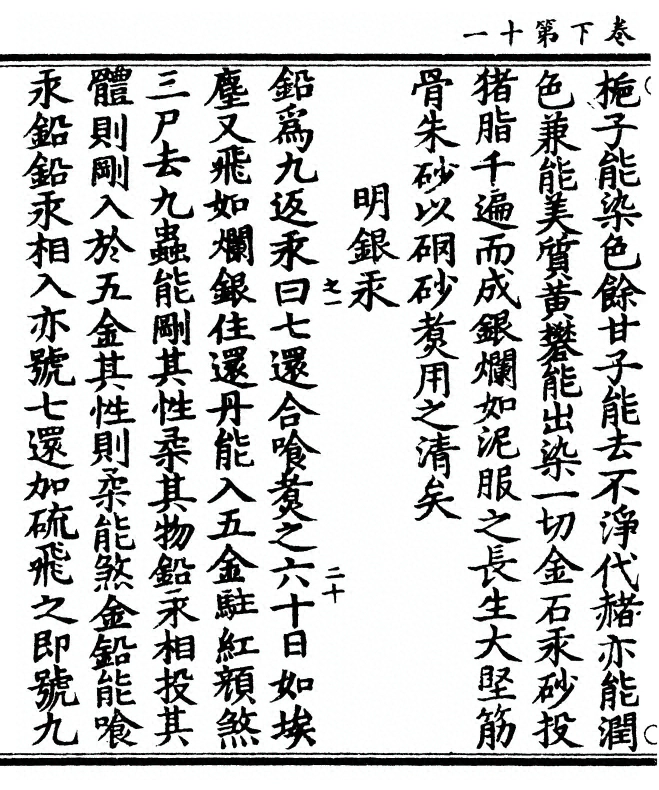 卷下第十一
梔子能染色餘甘子能去不淨代赭亦能潤
色兼能美質黃礬能出染一切金石汞砂投
猪脂千遍而成銀爛如泥服之長生大堅筋
骨朱砂以硇砂煑用之清矣
明銀汞
之一 二十
鉛爲九返汞曰七還合喰煑之六十日如埃
塵又飛如爛銀住還丹能入五金駐紅顏煞
三尸去九蟲能剛其性柔其物鉛汞相投其
體則剛入於五金其性則柔能煞金鉛能喰
汞鉛鉛汞相入亦號七還加硫飛之即號九